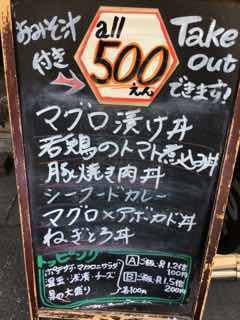 おみそ汁付き
all 500えん
Take Out できます!
マグロ漬け丼
若鶏のトマト煮込み丼
豚焼き肉丼
シーフードカレー
マグロ×アボカド丼
ねぎとろ丼
トッピング
ポテサラ・マカロニサラダ
温玉・チーズ
具の大盛り 各100円
A ご飯、具1.2倍 100円
B ご飯、具1.5倍 200円